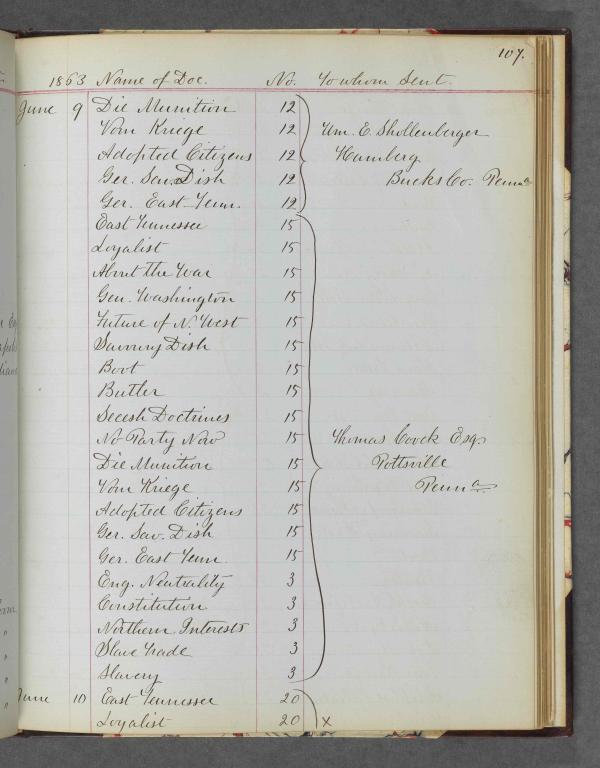 107.
1863 Name of Doc. No. To whom Sent.
June 9 Die Munition 12
Vom Kriege 12 Wm. E. Shollenberger
Adopted Citizens 12 Hamberg
Ger. Sav. Dish 12 Bucks Co. Penna
Ger. East Tenn. 12
East Tennessee 15
Loyalist 15
About the War 15
Gen. Washington 15
Future of N. West 15
Savoury Dish 15
Boot 15
Butler 15
Secesh Doctrines 15
No Party Now 15 Thomas Coock Esq.
Die Munition 15 Pottsville
Vom Kriege 15 Penna
Adopted Citizens 15
Ger. Sav. Dish 15
Ger. East Tenn. 15
Eng. Neutrality 3
Constitution 3
Northern Interests 3
Slave Trade 3
Slavery 3
June 10 East Tennessee 20
Loyalist 20 x